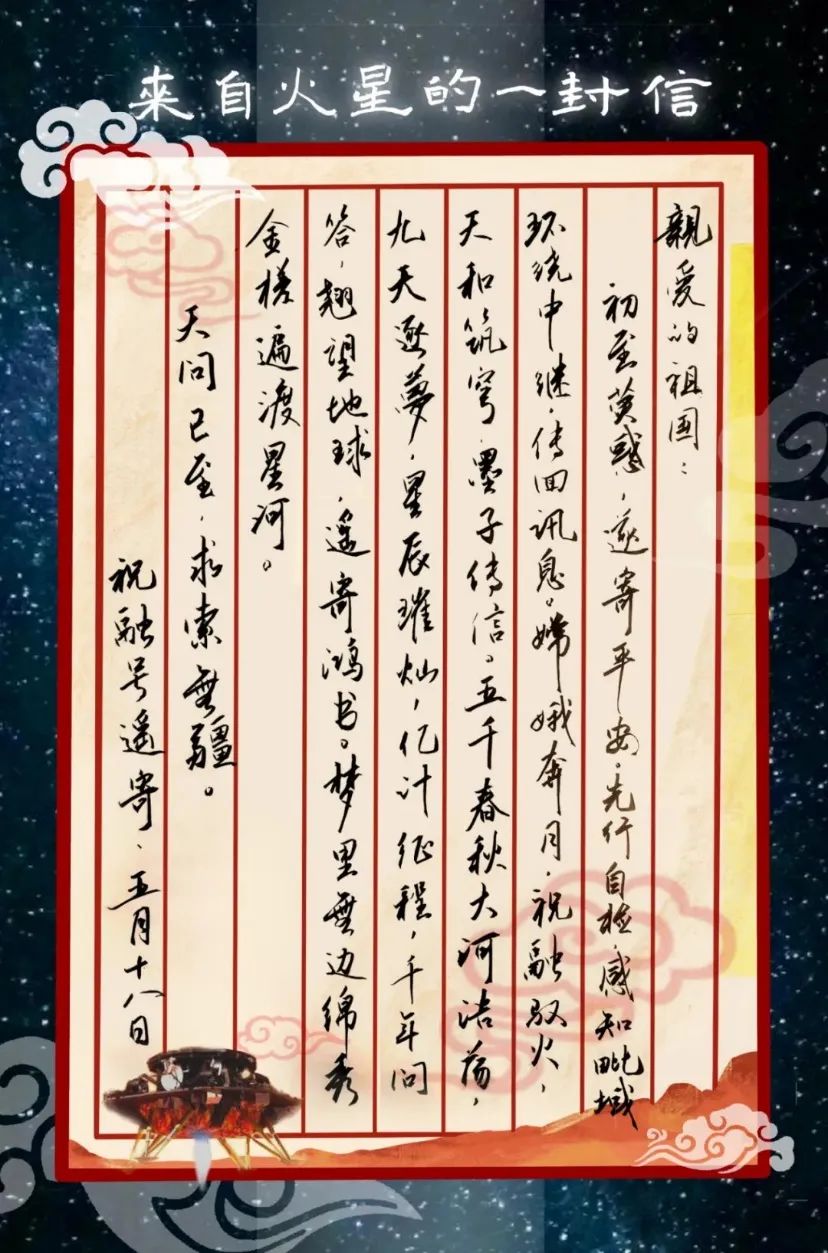 来自火星的一封信
親爱的祖国:
初至荧惑,遂寄平安。先行自检,感知毗域
环绕中继,传回讯息。嫦娥奔月,祝融驭火,
天和筑穹,墨子传信。五千春秋大河浩荡,
九天逐夢,星辰璀灿,亿计征程,千年问
答,翘望地球,遥寄鸿书。梦里無边绵秀
金槎遍渡星河。
天问已至,求索無疆。
祝融号遥寄、五月十八日